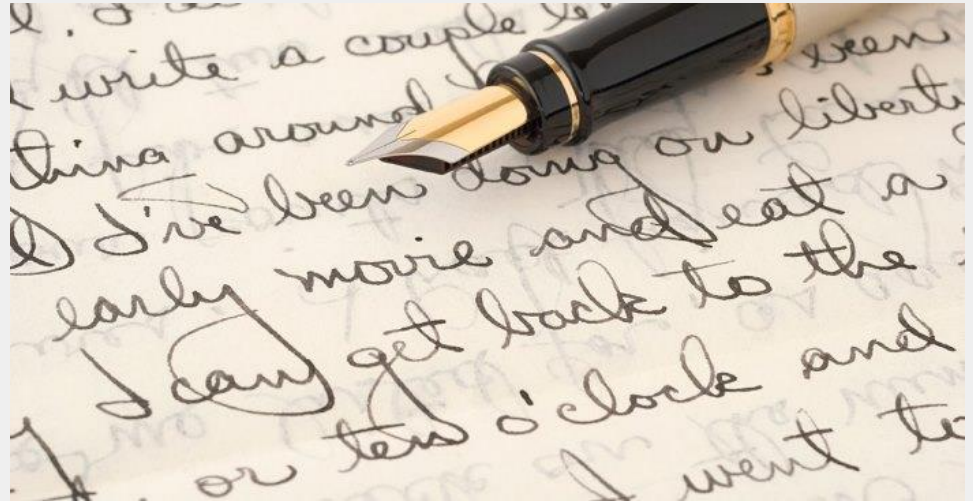 write a couple
thing around been
I've been doing on liberty
early movie and eat a
I can get back to the
or ten o'clock and
I went to